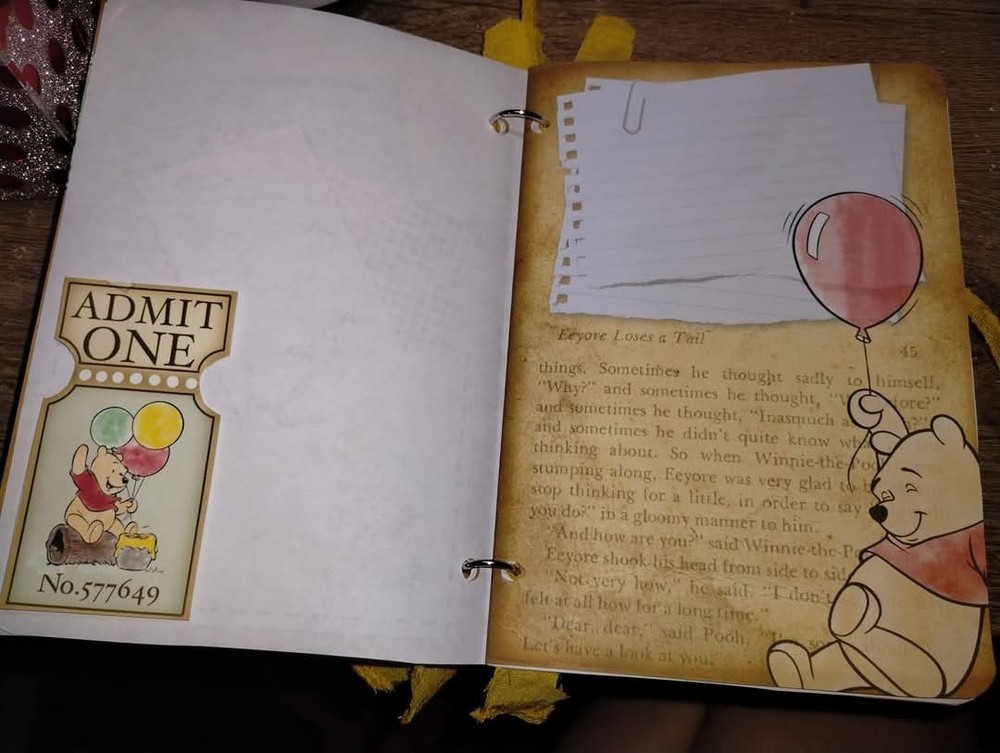 ADMIT
ONE
No.577649
Eeyore Loses a Tail
45
things. Sometimes he thought sadly to himself,
"Why?" and sometimes he thought,
and sometimes he thought, "Inasmuch
and sometimes he didn't quite know
thinking about. So when Winnie-the-Poo
stumping along, Eeyore was very glad to
stop thinking for a little, in order to say
you do?" in a gloomy manner to him.
"And how are you?" said Winnie-the-Po
Eeyore shook his head from side to sid
"Not very how," he said. "I don't
felt at all how for a long time."
"Dear, dear," said Pooh,
Let's have a look at you."